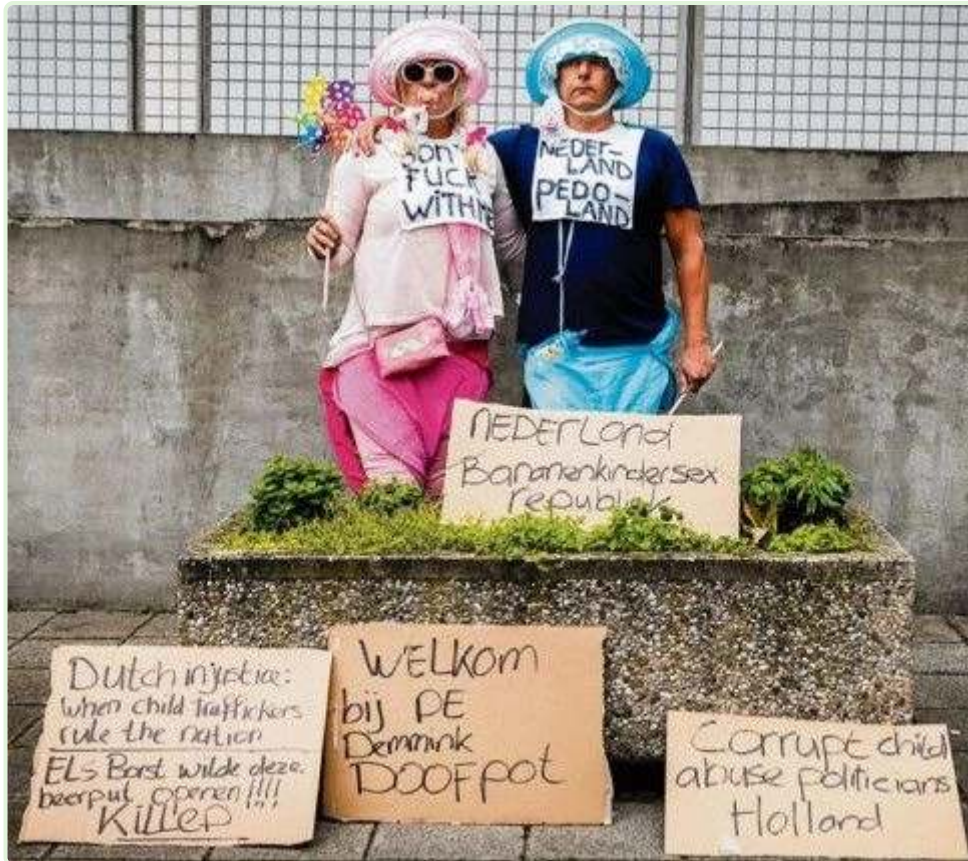 DON'T
FUCK
WITH ME
NEDER-
LAND
PEDO-
LAND
NEDERLAND
Bananenkindersex
republiek
Dutch injustice:
when child traffickers
rule the nation
ELs Borst wilde deze
beerput openen!!!!
KiLLED
WELKOM
bij DE
Demmink
DOOFpot
Corrupt child
abuse politicians
Holland